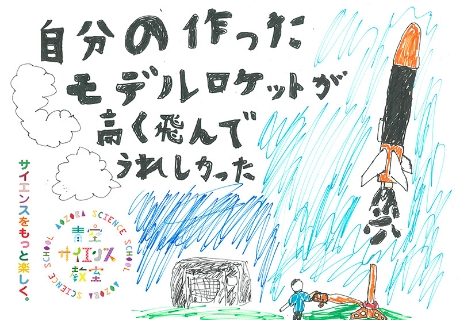 自分の作った
モデルロケットが
高く飛んで
うれしかった
サイエンスをもっと楽しく。
AOZORA SCIENCE SCHOOL
AOZORA SCIENCE SCHOOL
青空
サイエンス
教室